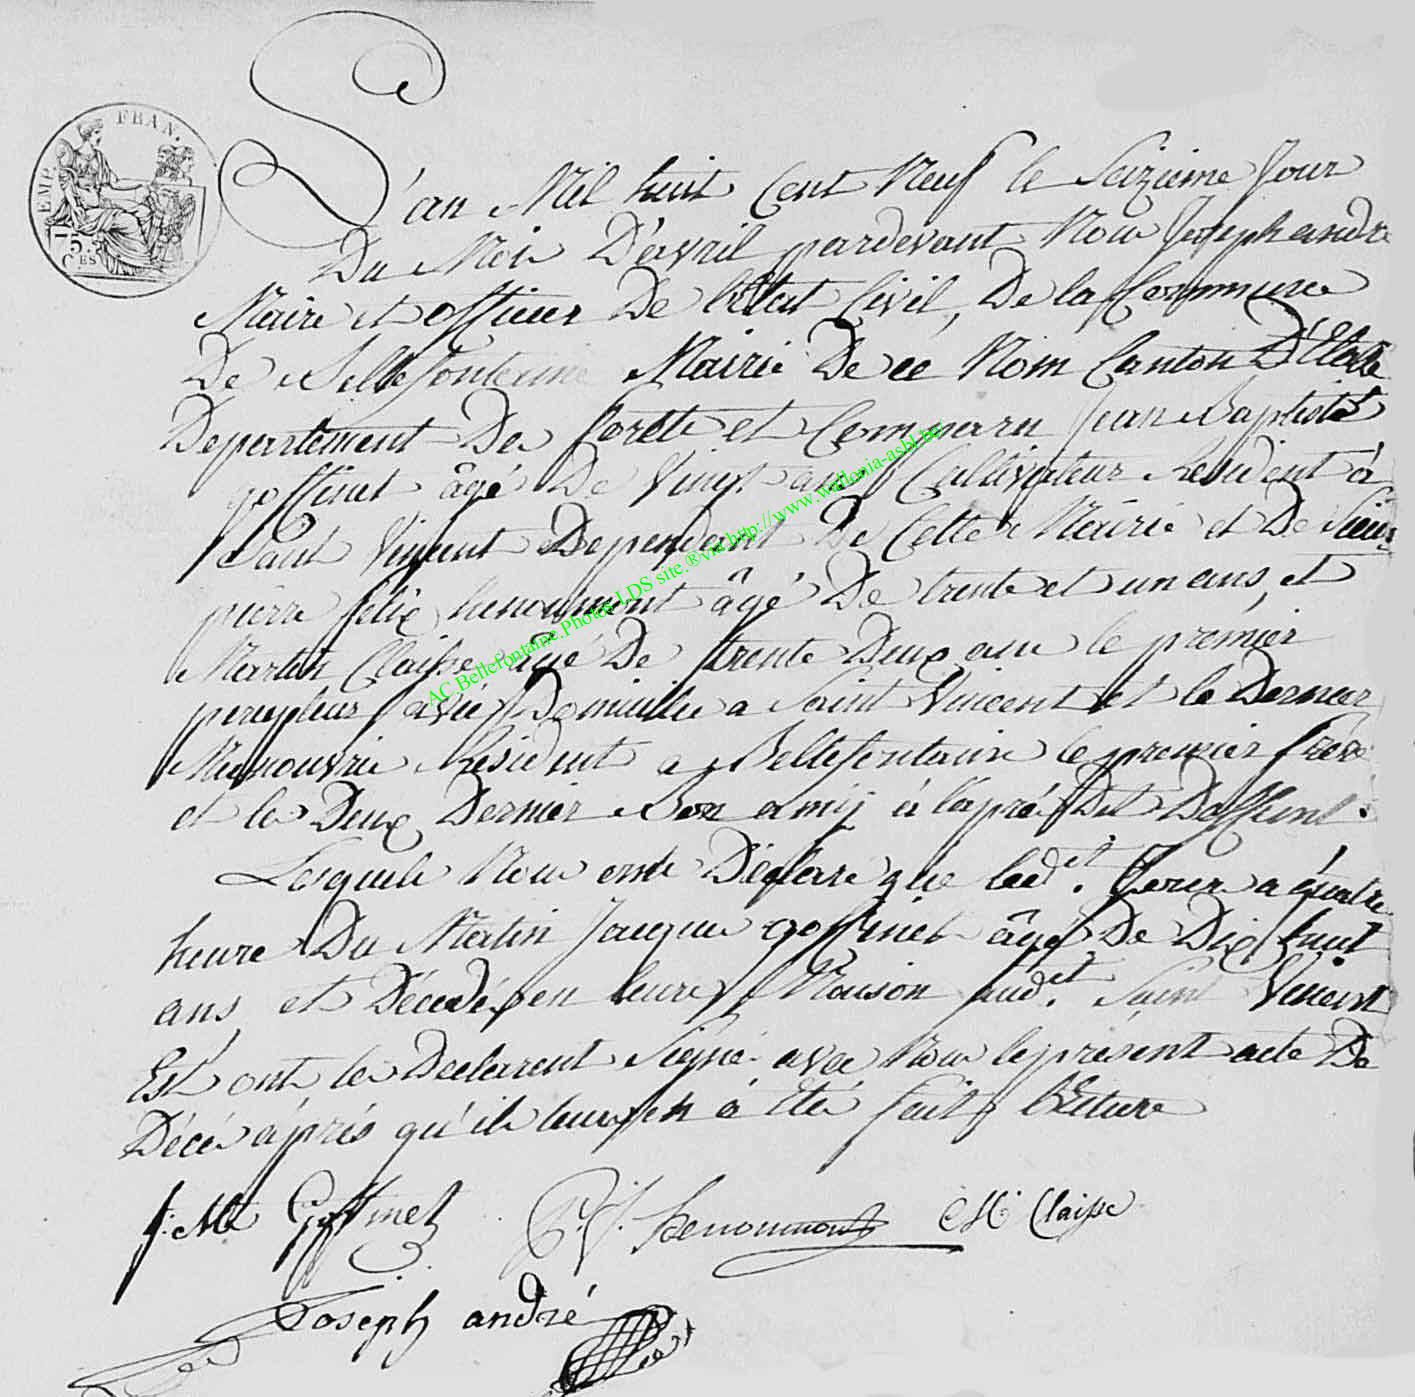 EMP. FRAN.
75. CES
L'an Mil huit Cent Neuf le Seizieme Jour
Du Mois D'avril pardevant Nous Joseph andré
Maire et officier De l'Etat Civil, De la Commune
De Bellefontaine Mairie De ce Nom Canton D'Etalle
Departement Des forêts et Comparu Jean Baptiste
goffinet âgé De Vingt ans Cultivateur Resident à
Saint Vincent Dependant De Cette Mairie et De
pierre felix henoumont âgé De trente et un ans, et
Martin Claisse agé De trente Deux ans le premier
percepteur Domicilie a Saint Vincent et le Dernier
Manouvrie Resident a Bellefontaine le premier frère
et les Deux Dernier Bon amij à l'apré Dit Deffunt.
Lesquels Nous ont Déclaré que led.et Jour a quatre
heure Du Matin Jacques goffinet âgé De Dix huit
ans et Décedé en leure Maison aud.et Saint Vincent
Est ont les Declarent Signé avec Nous le présent acte De
Décé aprés qu'ils leurs en à Eté fait lecture
Goffinet P. f. henoumont M Claisse
Joseph andré
AC Bellefontaine.Photos LDS site.®via.http://www.wallonia-asbl.be/